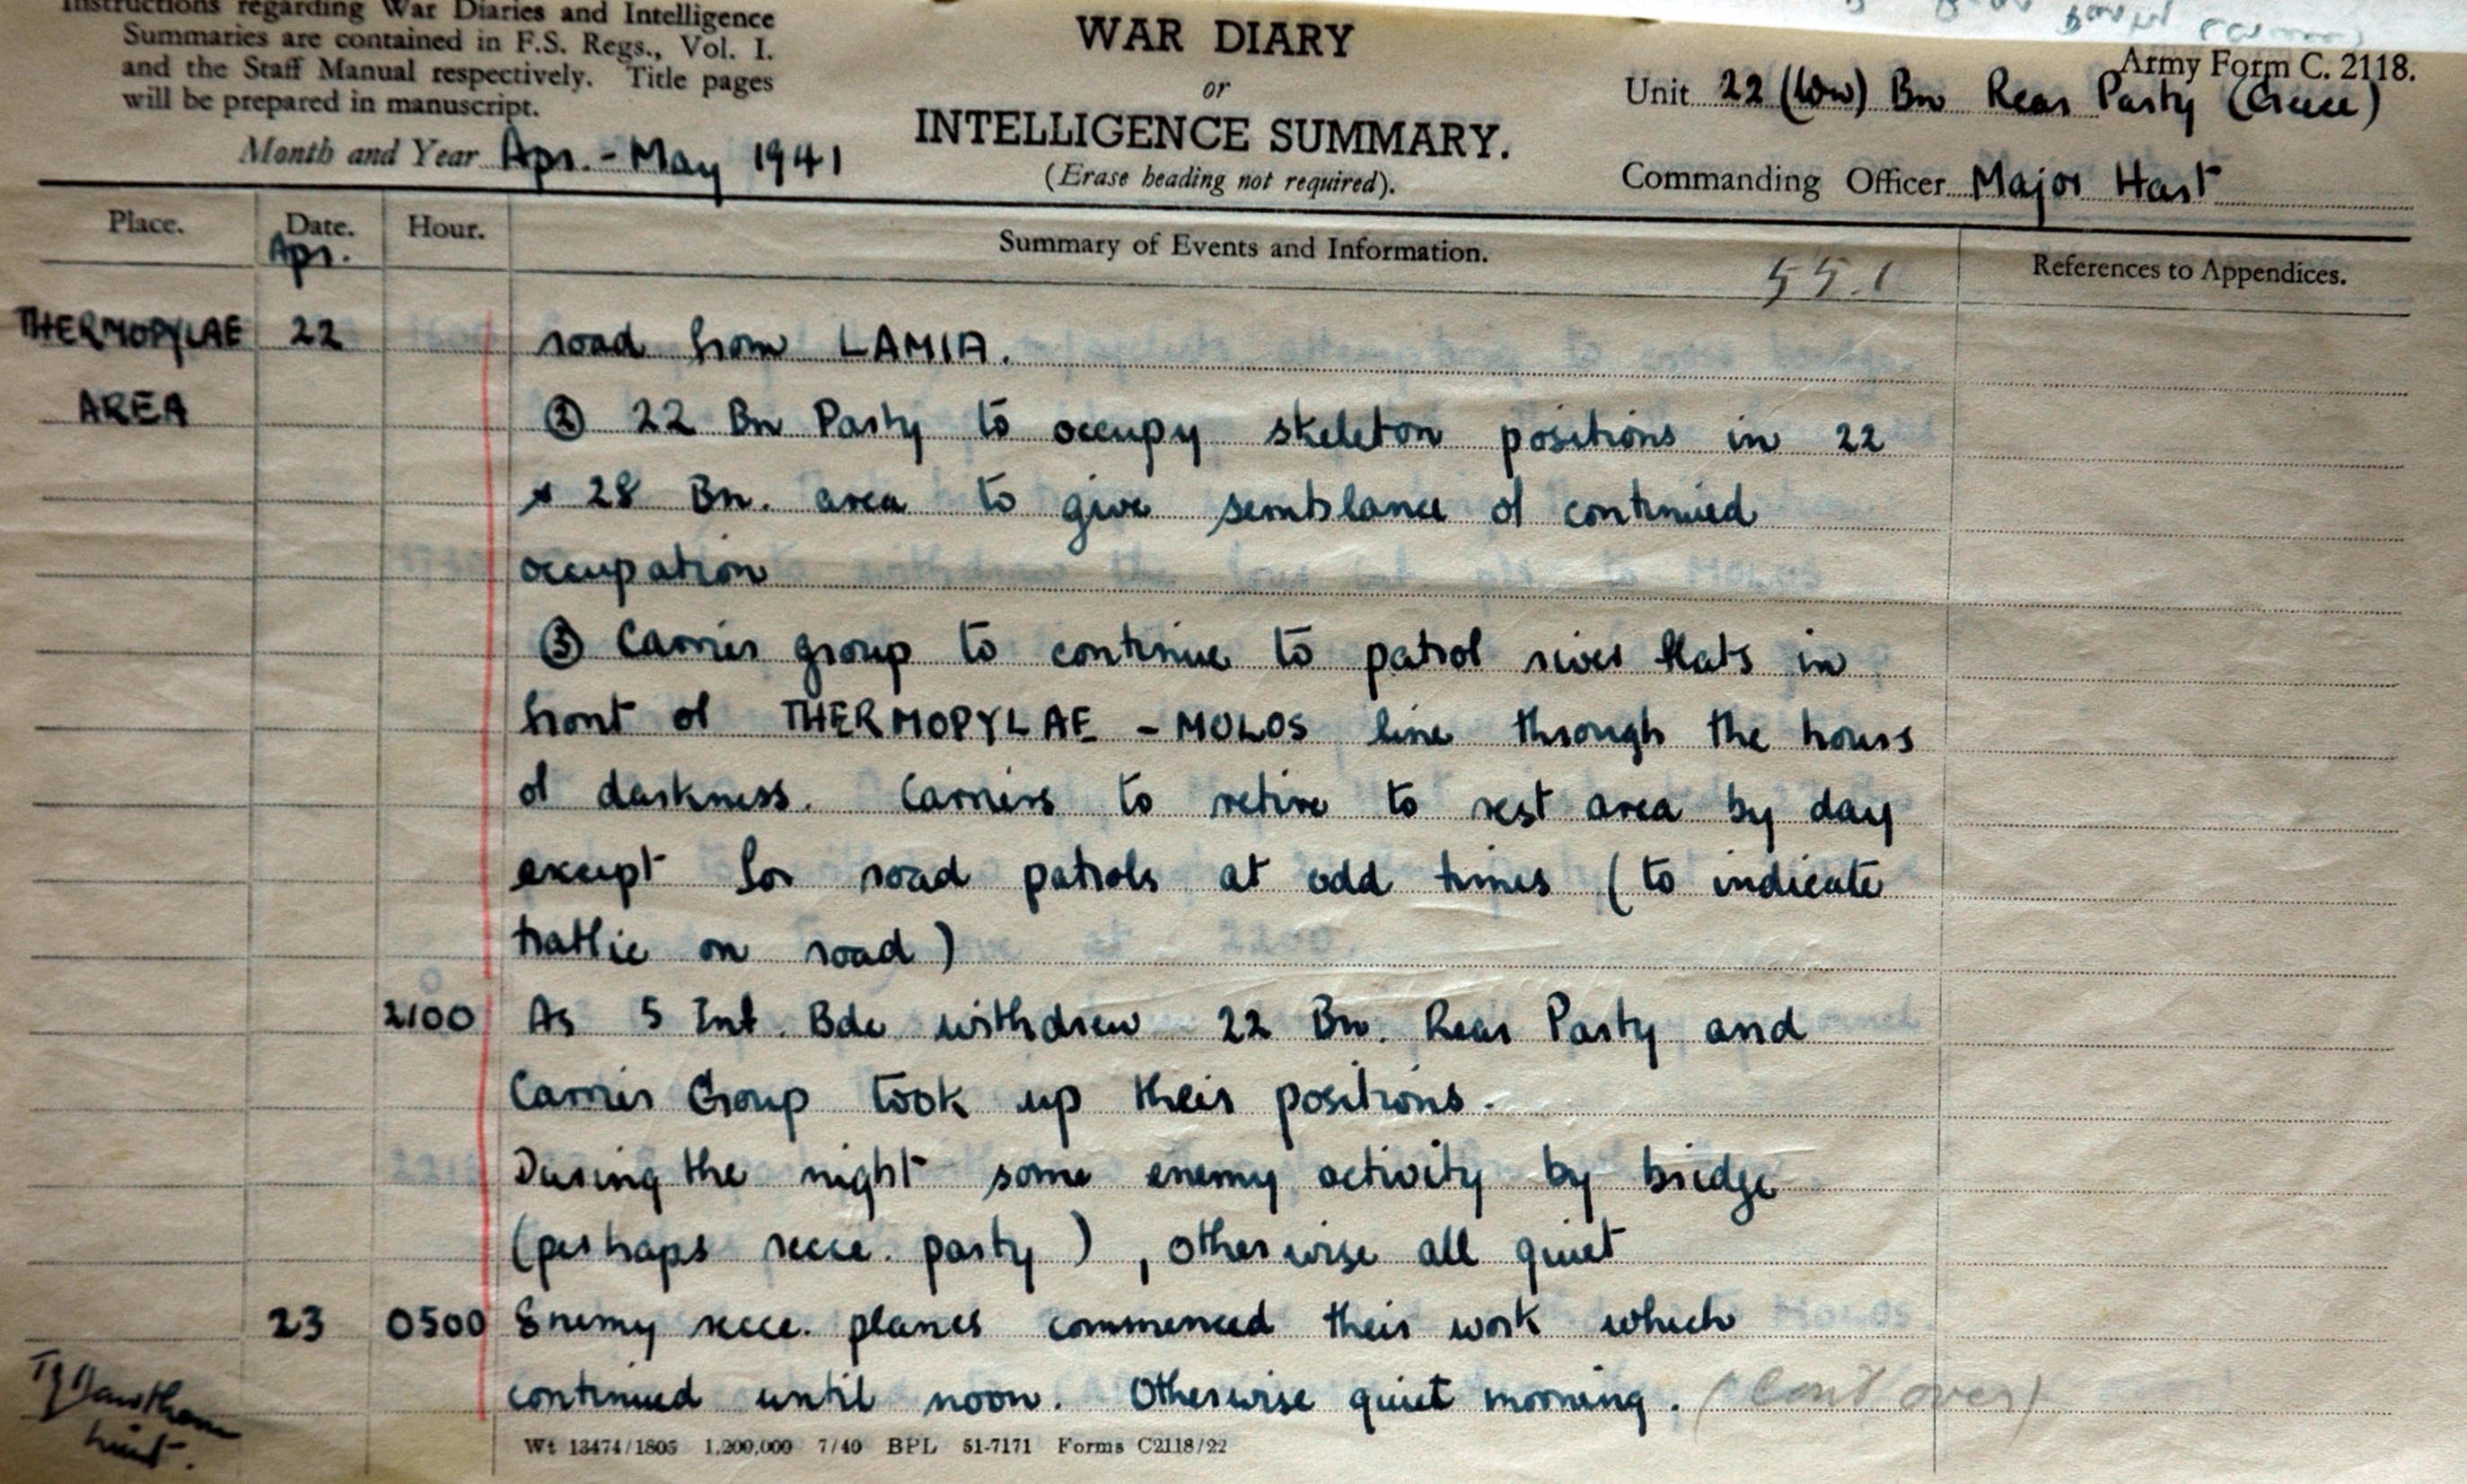 Instructions regarding War Diaries and Intelligence
Summaries are contained in F.S. Regs., Vol. I.
and the Staff Manual respectively. Title pages
will be prepared in manuscript.
Month and Year Apr. - May 1941
WAR DIARY
or
INTELLIGENCE SUMMARY.
(Erase heading not required).
Army Form C. 2118.
Unit 22 (Wn) Bn Rear Party (Greece)
Commanding Officer Major Hart
Place. Date. Hour. Summary of Events and Information. References to Appendices.
Apr. 55.1
THERMOPYLAE 22 road from LAMIA.
AREA ② 22 Bn Party to occupy skeleton positions in 22
+ 28 Bn. area to give semblance of continued
occupation
③ Carrier group to continue to patrol river flats in
front of THERMOPYLAE - MOLOS line through the hours
of darkness. Carriers to retire to rest area by day
except for road patrols at odd times (to indicate
traffic on road)
2100 As 5 Inf. Bde withdrew 22 Bn. Rear Party and
Carrier Group took up their positions.
During the night some enemy activity by bridge
(perhaps recce. party), otherwise all quiet
23 0500 Enemy recce. planes commenced their work which
continued until noon. Otherwise quiet morning. (Cont over)
Wt 13474/1805 1,200,000 7/40 BPL 51-7171 Forms C2118/22